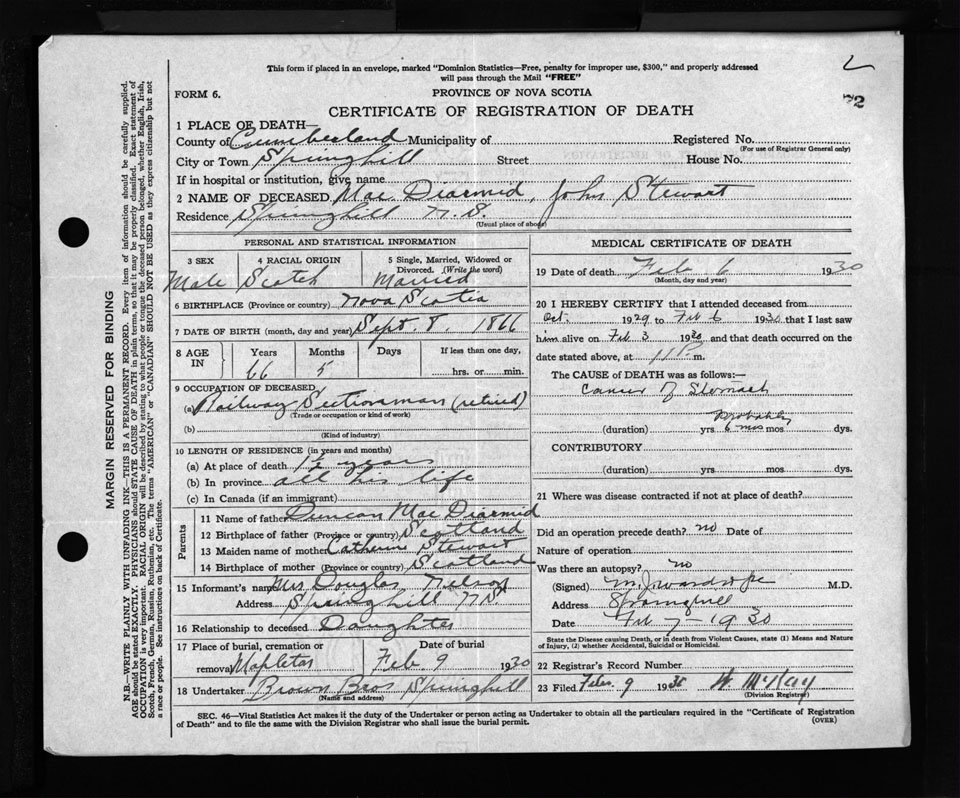 This form if placed in an envelope, marked "Dominion Statistics—Free, penalty for improper use, $300," and properly addressed
will pass through the Mail "FREE"
72
FORM 6.
PROVINCE OF NOVA SCOTIA
CERTIFICATE OF REGISTRATION OF DEATH
1 PLACE OF DEATH—
County of Cumberland Municipality of Registered No.
(For use of Registrar General only)
City or Town Springhill Street House No.
If in hospital or institution, give name
2 NAME OF DECEASED Mac Diarmid, John Stewart
Residence Springhill N.S.
(Usual place of abode)
PERSONAL AND STATISTICAL INFORMATION
3 SEX 4 RACIAL ORIGIN 5 Single, Married, Widowed or
Divorced. (Write the word)
Male Scotch Married
6 BIRTHPLACE (Province or country) Nova Scotia
7 DATE OF BIRTH (month, day and year) Sept. 8. 1866
8 AGE IN Years Months Days If less than one day,
66 5 hrs. or min.
9 OCCUPATION OF DECEASED
(a) Railway Sectionman (retired)
(Trade or occupation or kind of work)
(b)
(Kind of industry)
10 LENGTH OF RESIDENCE (in years and months)
(a) At place of death 1½ years
(b) In province all his life
(c) In Canada (if an immigrant)
Parents
11 Name of father Duncan Mac Diarmid
12 Birthplace of father (Province or country) Scotland
13 Maiden name of mother Catherine Stewart
14 Birthplace of mother (Province or country) Scotland
15 Informant's name Mrs Douglas Nelson
Address Springhill N.S.
16 Relationship to deceased Daughter
17 Place of burial, cremation or Date of burial
removal Mapleton Feb. 9 1930
18 Undertaker Brown Bros Springhill
(Name and address)
MEDICAL CERTIFICATE OF DEATH
19 Date of death Feb 6 1930
(Month, day and year)
20 I HEREBY CERTIFY that I attended deceased from
Oct. 1929 to Feb 6 1930 that I last saw
him alive on Feb 3 1930 and that death occurred on the
date stated above, at 11 P. m.
The CAUSE of DEATH was as follows:—
Cancer of Stomach
probably
(duration) yrs 6 mos mos dys.
CONTRIBUTORY
(duration) yrs mos dys.
21 Where was disease contracted if not at place of death?
Did an operation precede death? no Date of
Nature of operation
Was there an autopsy? no
(Signed) M. J. Wardrope M.D.
Address Springhill
Date Feb 7 - 1930
State the Disease causing Death, or in death from Violent Causes, state (1) Means and Nature
of Injury, (2) whether Accidental, Suicidal or Homicidal.
22 Registrar's Record Number
23 Filed Feb. 9 1930 W McKay
(Division Registrar)
SEC. 46—Vital Statistics Act makes it the duty of the Undertaker or person acting as Undertaker to obtain all the particulars required in the "Certificate of Registration
of Death" and to file the same with the Division Registrar who shall issue the burial permit.
(OVER)
MARGIN RESERVED FOR BINDING
N.B.—WRITE PLAINLY WITH UNFADING INK—THIS IS A PERMANENT RECORD. Every item of information should be carefully supplied.
AGE should be stated EXACTLY. PHYSICIANS should STATE CAUSE OF DEATH in plain terms, so that it may be properly classified. Exact statement of
OCCUPATION is very important. RACIAL ORIGIN will be described by stating to what people or tongue the deceased person belonged, whether English, Irish,
Scotch, French, German, Russian, Ruthenian, etc. The terms "AMERICAN" or "CANADIAN" SHOULD NOT BE USED as they express citizenship but not
a race or people. See instructions on back of Certificate.